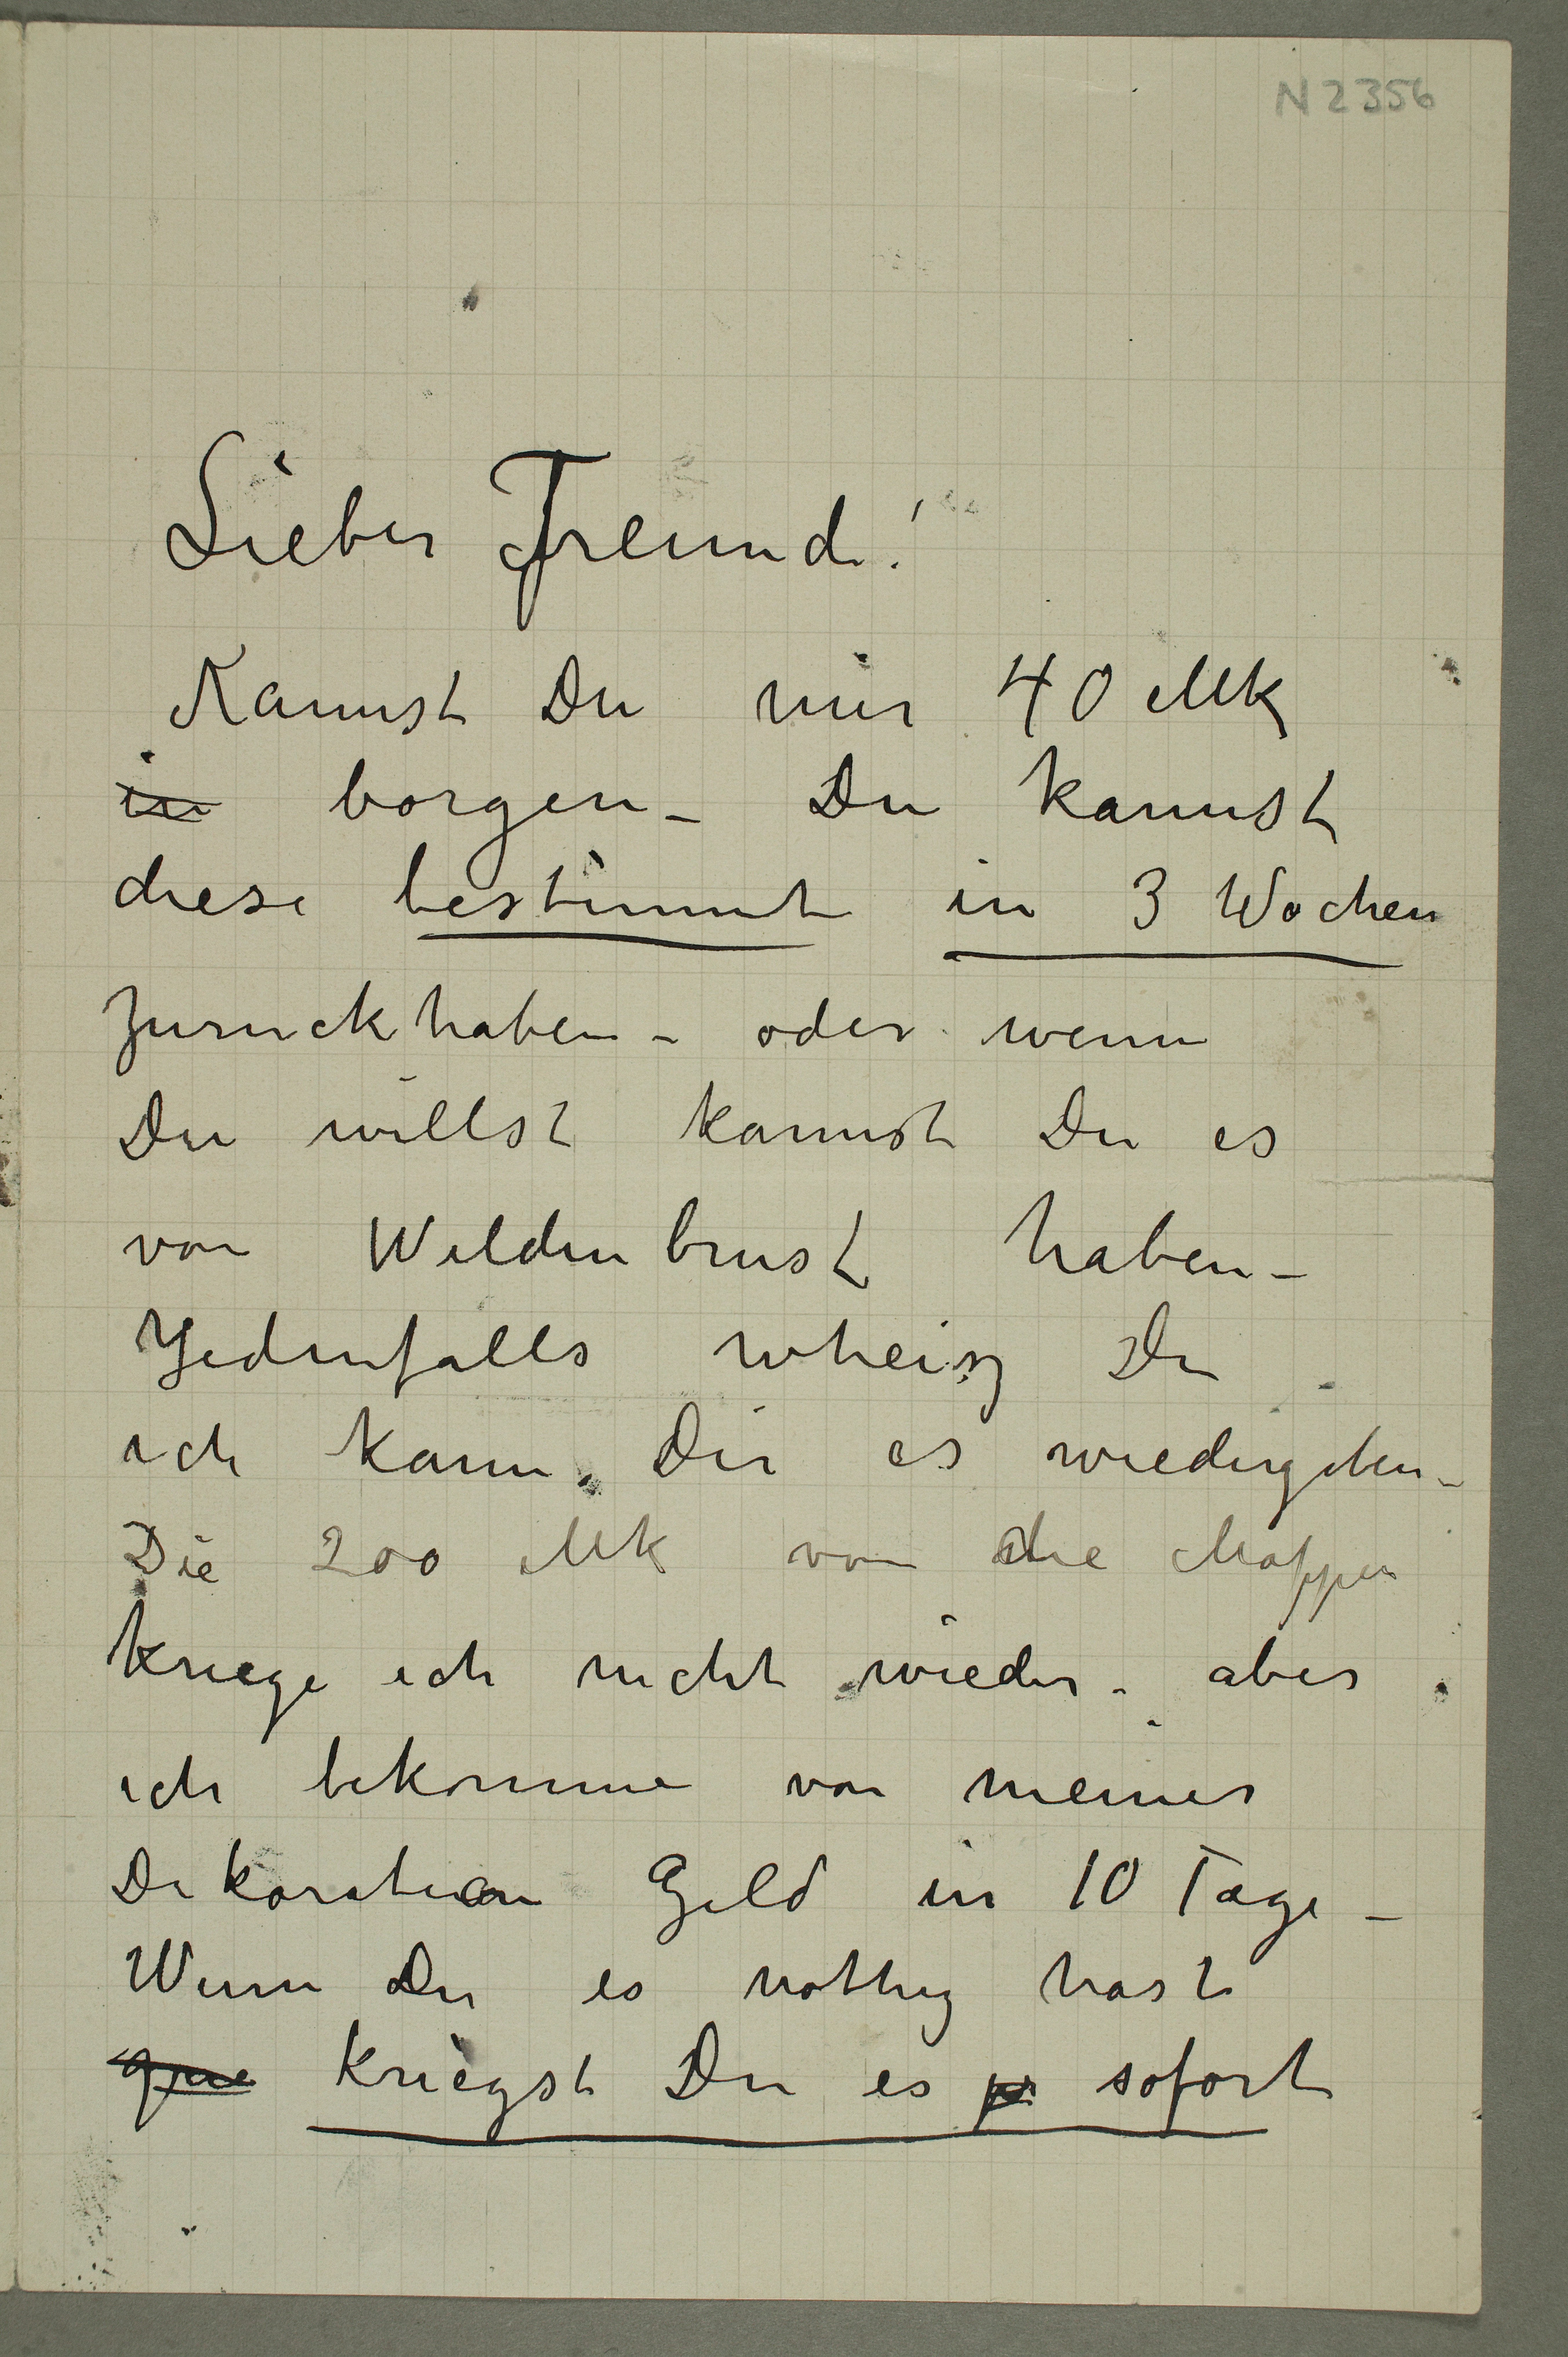 N 2356
Lieber Freund!
Kannst Du mir 40 Mk
in borgen – Du kannst
diese bestimmt in 3 Wochen
zuruckhaben – oder wenn
Du willst kannst Du es
von Wildenbrust haben –
Jedenfalls wheisz Du
ich kann Dir es wiedergeben –
Die 200 Mk von die Mappen
kriege ich nicht wieder – aber
ich bekomme von meiner
Dekoration Geld in 10 Tage –
Wenn Du es nothig hast
kriegst Du es sofort